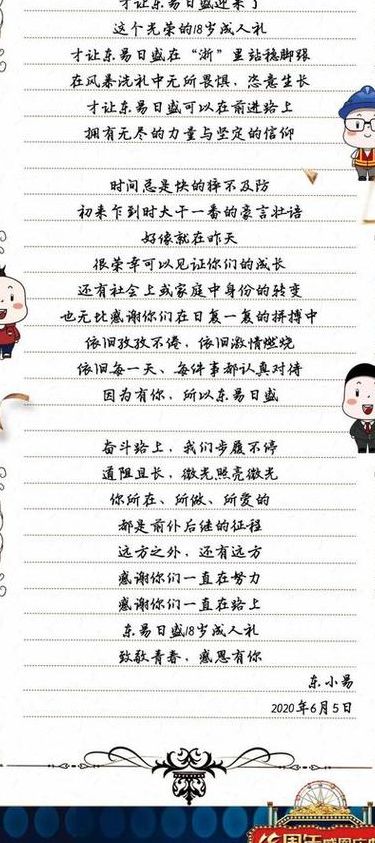 才让东易日盛迎来了
这个光荣的18岁成人礼
才让东易日盛在“浙”里站稳脚跟
在风暴洗礼中无所畏惧，恣意生长
才让东易日盛可以在前进路上
拥有无尽的力量与坚定的信仰
时间总是快的猝不及防
初来乍到时大干一番的豪言壮语
好像就在昨天
很荣幸可以见证你们的成长
还有社会上或家庭中身份的转变
也无比感谢你们在日复一复的拼搏中
依旧孜孜不倦，依旧激情燃烧
依旧每一天、每件事都认真对待
因为有你，所以东易日盛
奋斗路上，我们步履不停
道阻且长，微光照亮微光
你所在、所做、所爱的
都是前仆后继的征程
远方之外，还有远方
感谢你们一直在努力
感谢你们一直在路上
东易日盛18岁成人礼
致敬青春，感恩有你
东小易
2020年6月5日
周年感恩庆